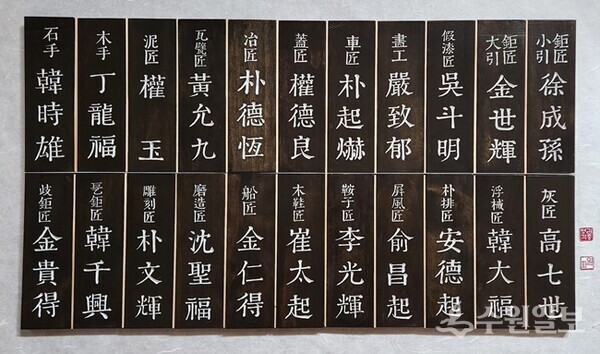 石手 韓時雄
木手 丁龍福
泥匠 權玉
瓦甓匠 黃允九
冶匠 朴德恆
蓋匠 權德良
車匠 朴起爀
畫工 嚴致郁
假漆匠 吳斗明
大引鉅匠 金世輝
小引鉅匠 徐成孫
歧鉅匠 金貴得
乬鉅匠 韓千興
雕刻匠 朴文輝
磨造匠 沈聖福
船匠 金仁得
木鞋匠 崔太起
鞍子匠 李光輝
屛風匠 俞昌起
朴排匠 安德起
浮械匠 韓大福
灰匠 高七世
수원일보